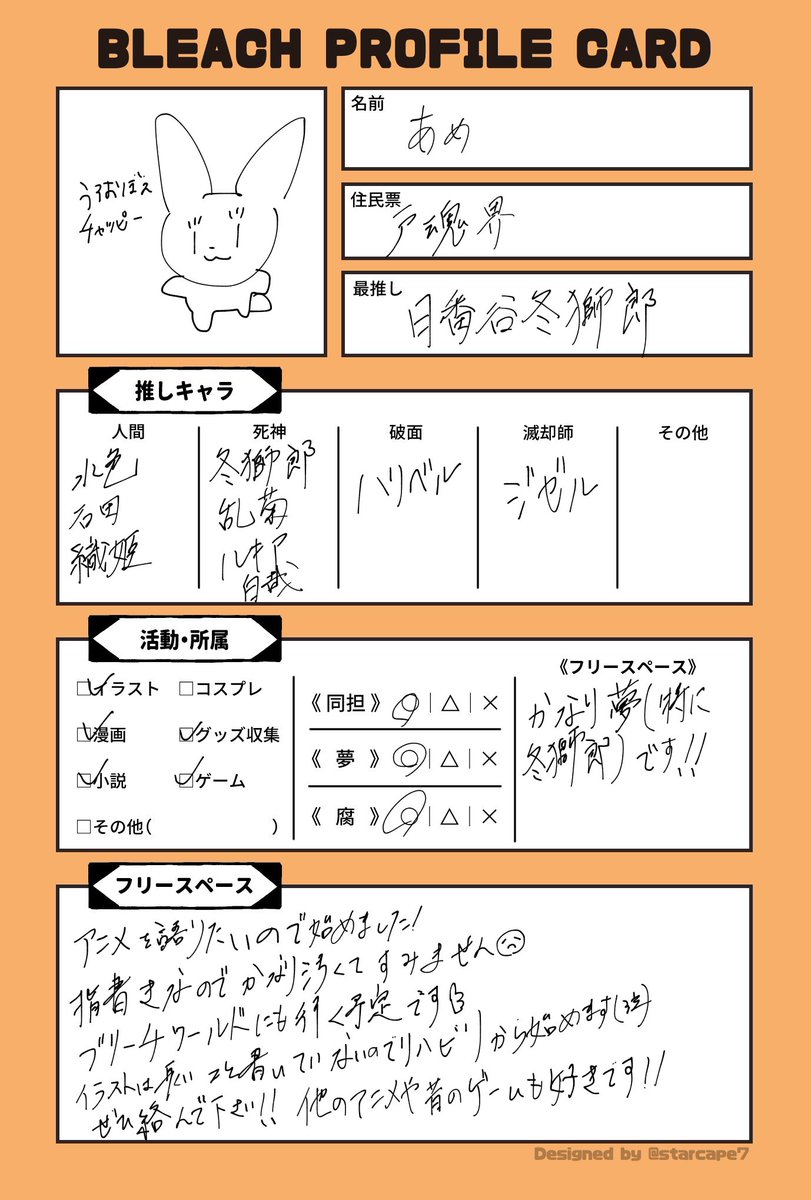 BLEACH PROFILE CARD
うろおぼえ
チャッピー
名前
あめ
住民票
尸魂界
最推し
日番谷冬獅郎
推しキャラ
人間
水色
石田
織姫
死神
冬獅郎
乱菊
ルキア
白哉
破面
ハリベル
滅却師
ジゼル
その他
活動・所属
□イラスト □コスプレ
□漫画 □グッズ収集
□小説 □ゲーム
□その他( )
《 同担 》○|△|×
《 夢 》○|△|×
《 腐 》○|△|×
《フリースペース》
かなり夢(特に
冬獅郎)です!!
フリースペース
アニメを語りたいので始めました!
指書きなのでかなり汚くてすみません
ブリーチワールドにも行く予定です
イラストは長い 書いていないのでリハビリから始めます(泣)
ぜひ絡んで下さい!! 他のアニメや昔のゲームも好きです!!
Designed by @starcape7